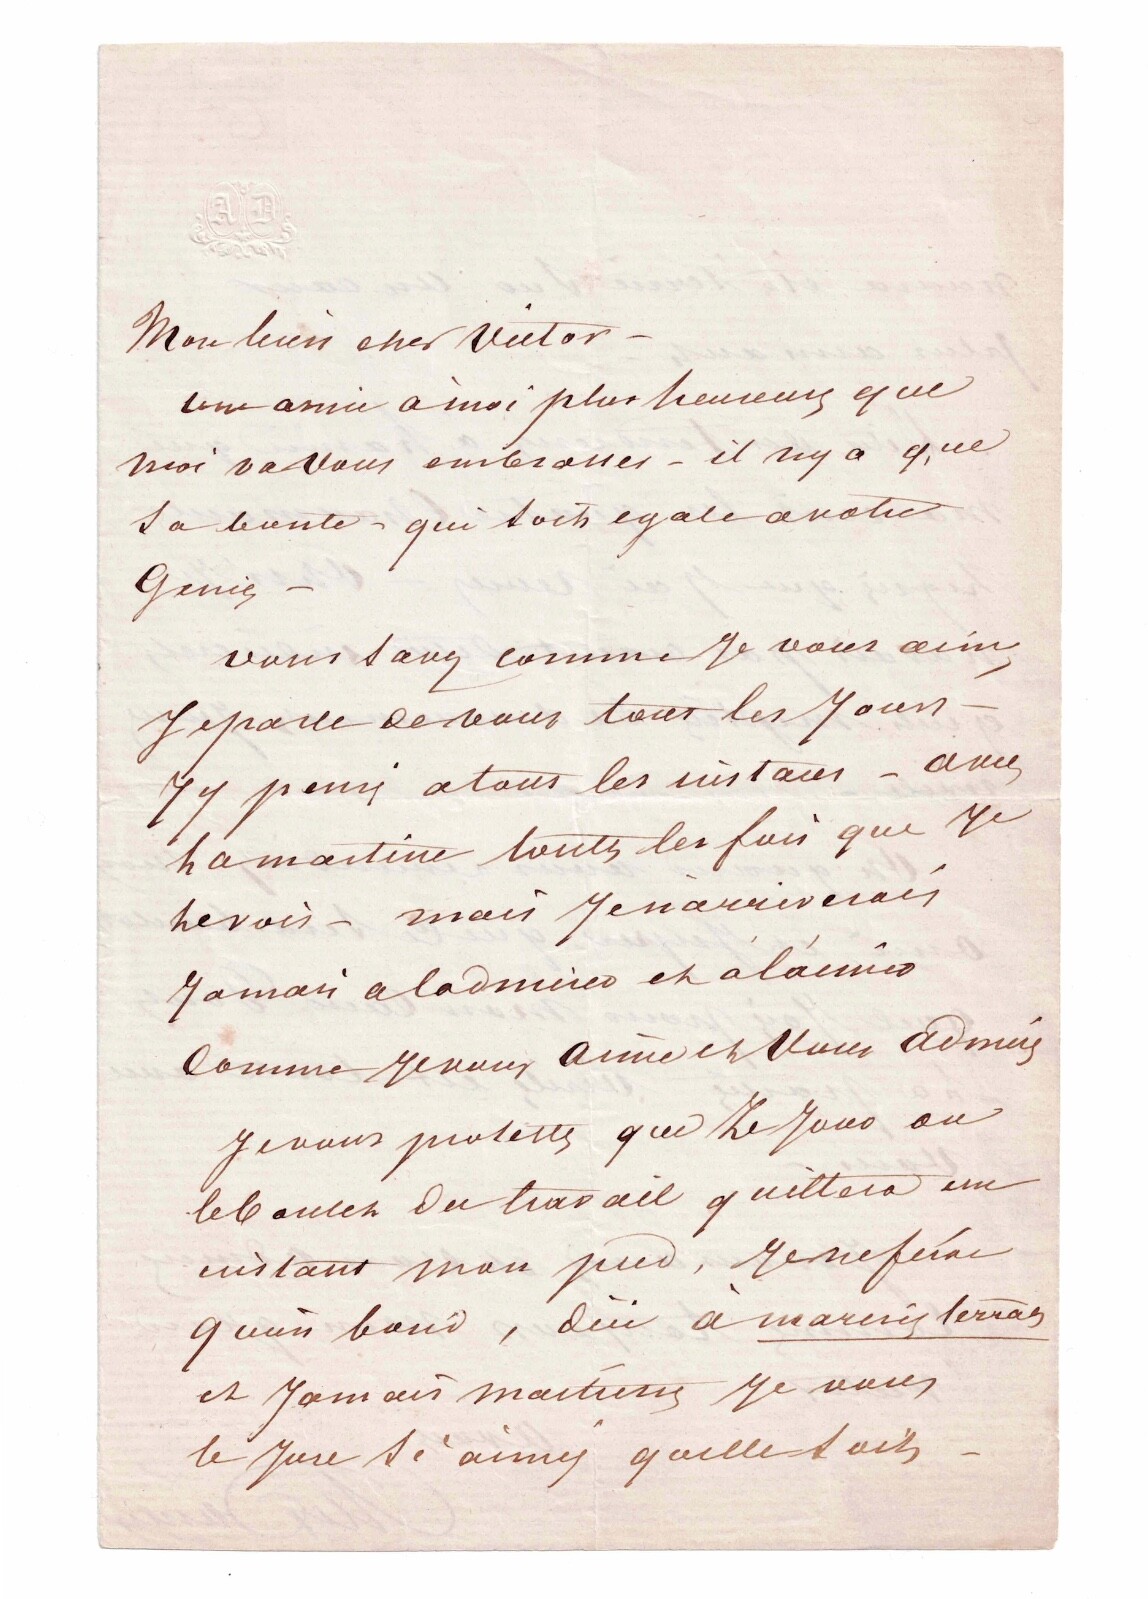 A D
Mon bien cher Victor –
une amie à moi plus heureuse que
moi va vous embrasser – il n'y a que
sa bonte – qui soit egale a votre
Genie –
vous savez comme je vous aime
Je parle de vous tous les jours –
J'y pense a tous les instans – avec
Lamartine toutes les fois que je
le vois – mais je n'arriverais
Jamais a l'admirer et à l'aimer
Comme je vous aime et vous admire
Je vous proteste que le jour ou
le boulet du travail quittera un
instant mon pied, je ne ferai
qu'un bond, d'ici à marine terrace
et jamais maitresse je vous
le jure si aimée qu'elle soit –